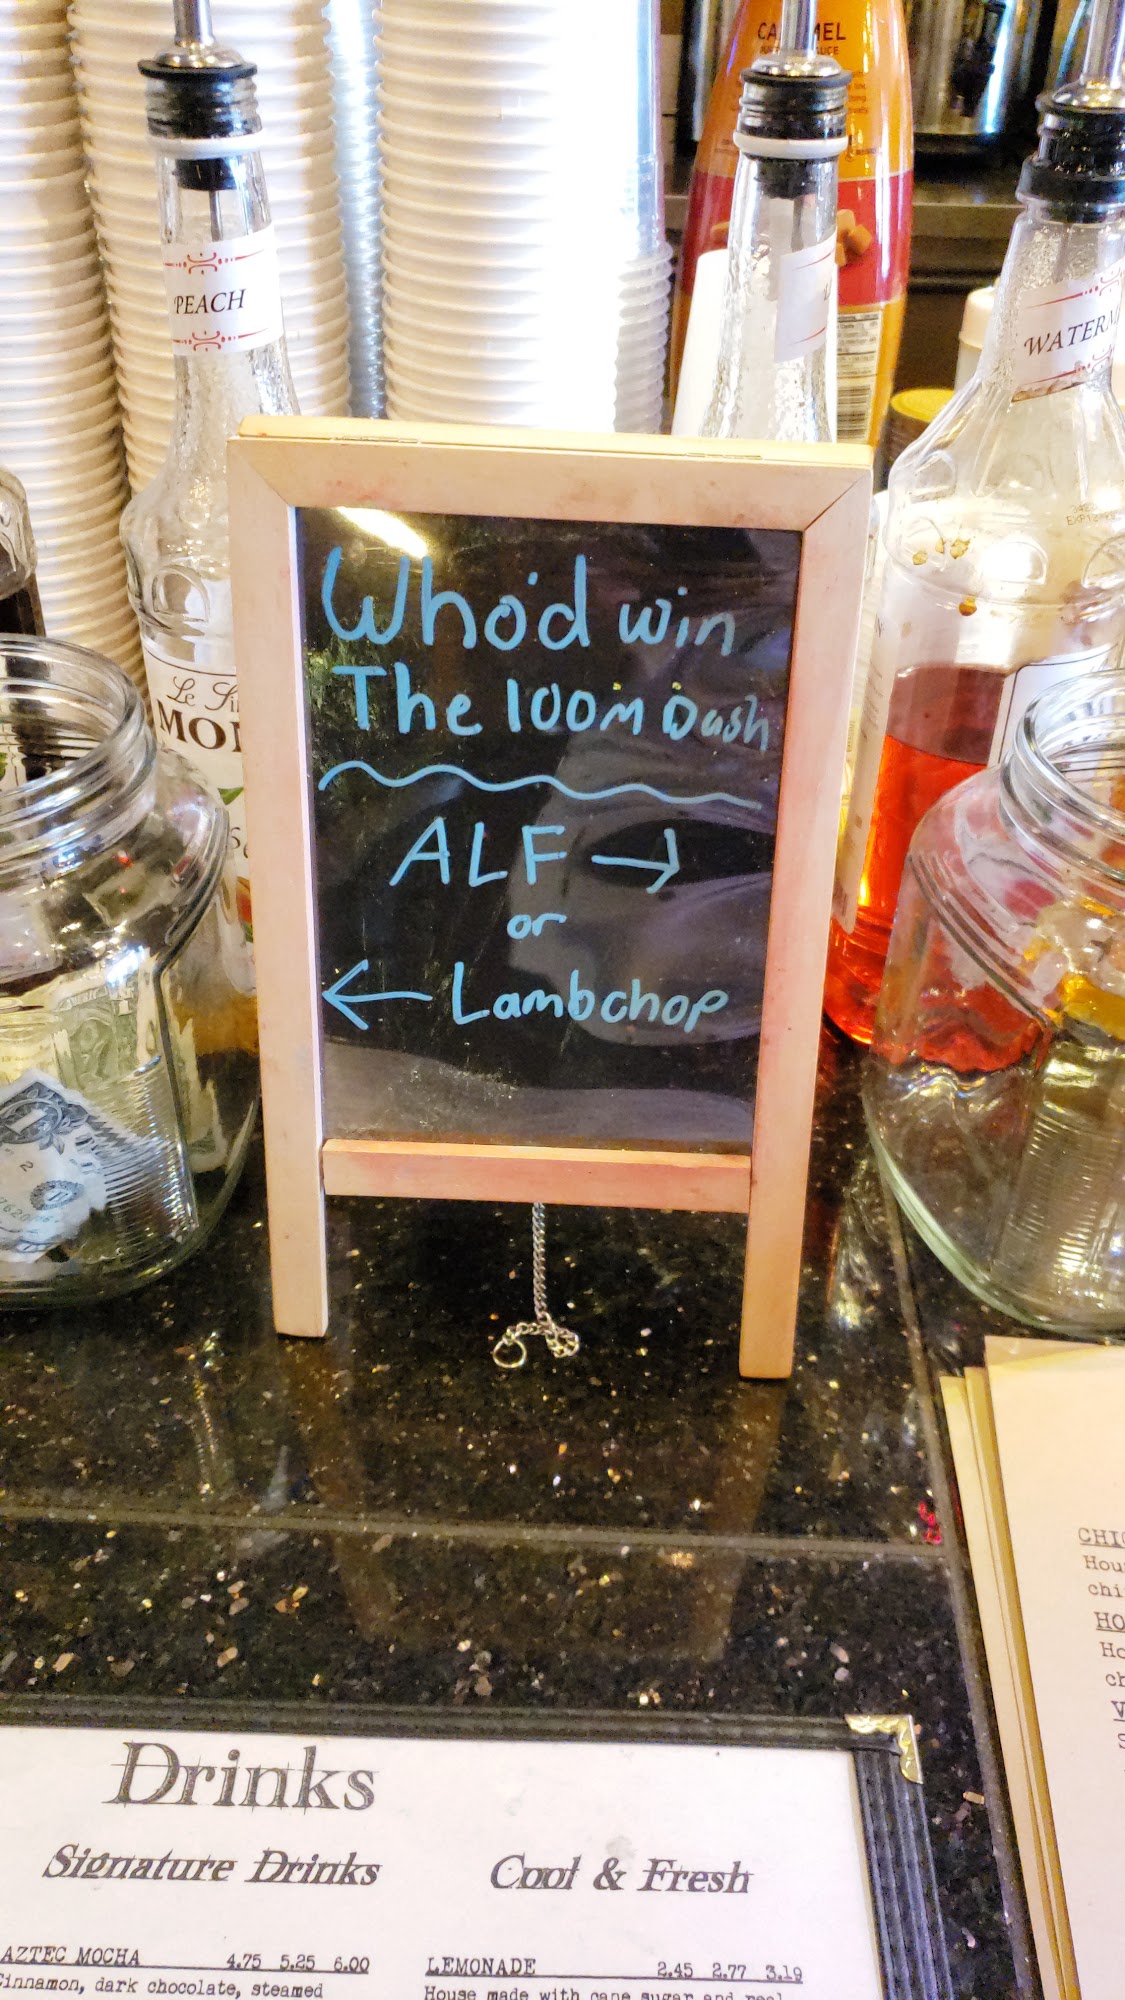 CARAMEL
PEACH
Who'd win
The 100m Dash
ALF →
or
← Lambchop
Drinks
Signature Drinks
AZTEC MOCHA 4.75 5.25 6.00
Cinnamon, dark chocolate, steamed
Cool & Fresh
LEMONADE 2.45 2.77 3.19
House made with cane sugar and real